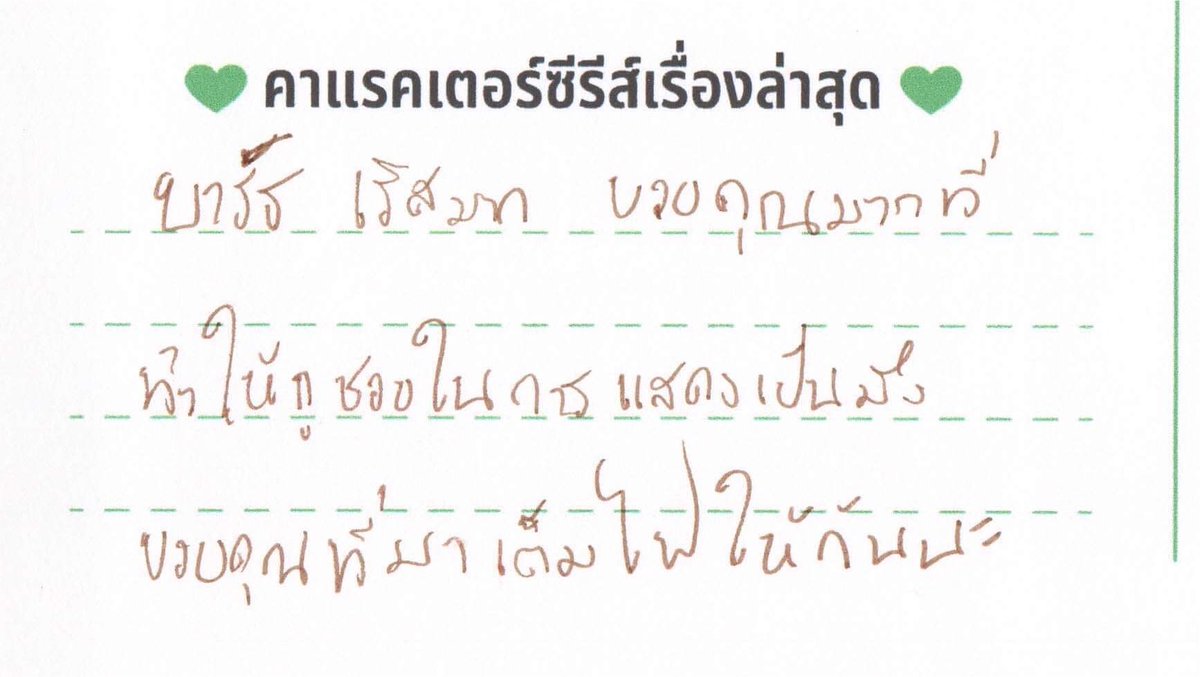 คาแรคเตอร์ซีรีส์เรื่องล่าสุด
ขอบคุณมากที่
ทำให้กูชอบในการแสดงเป็นมึง
ขอบคุณที่มาเติมไฟให้กันนะ